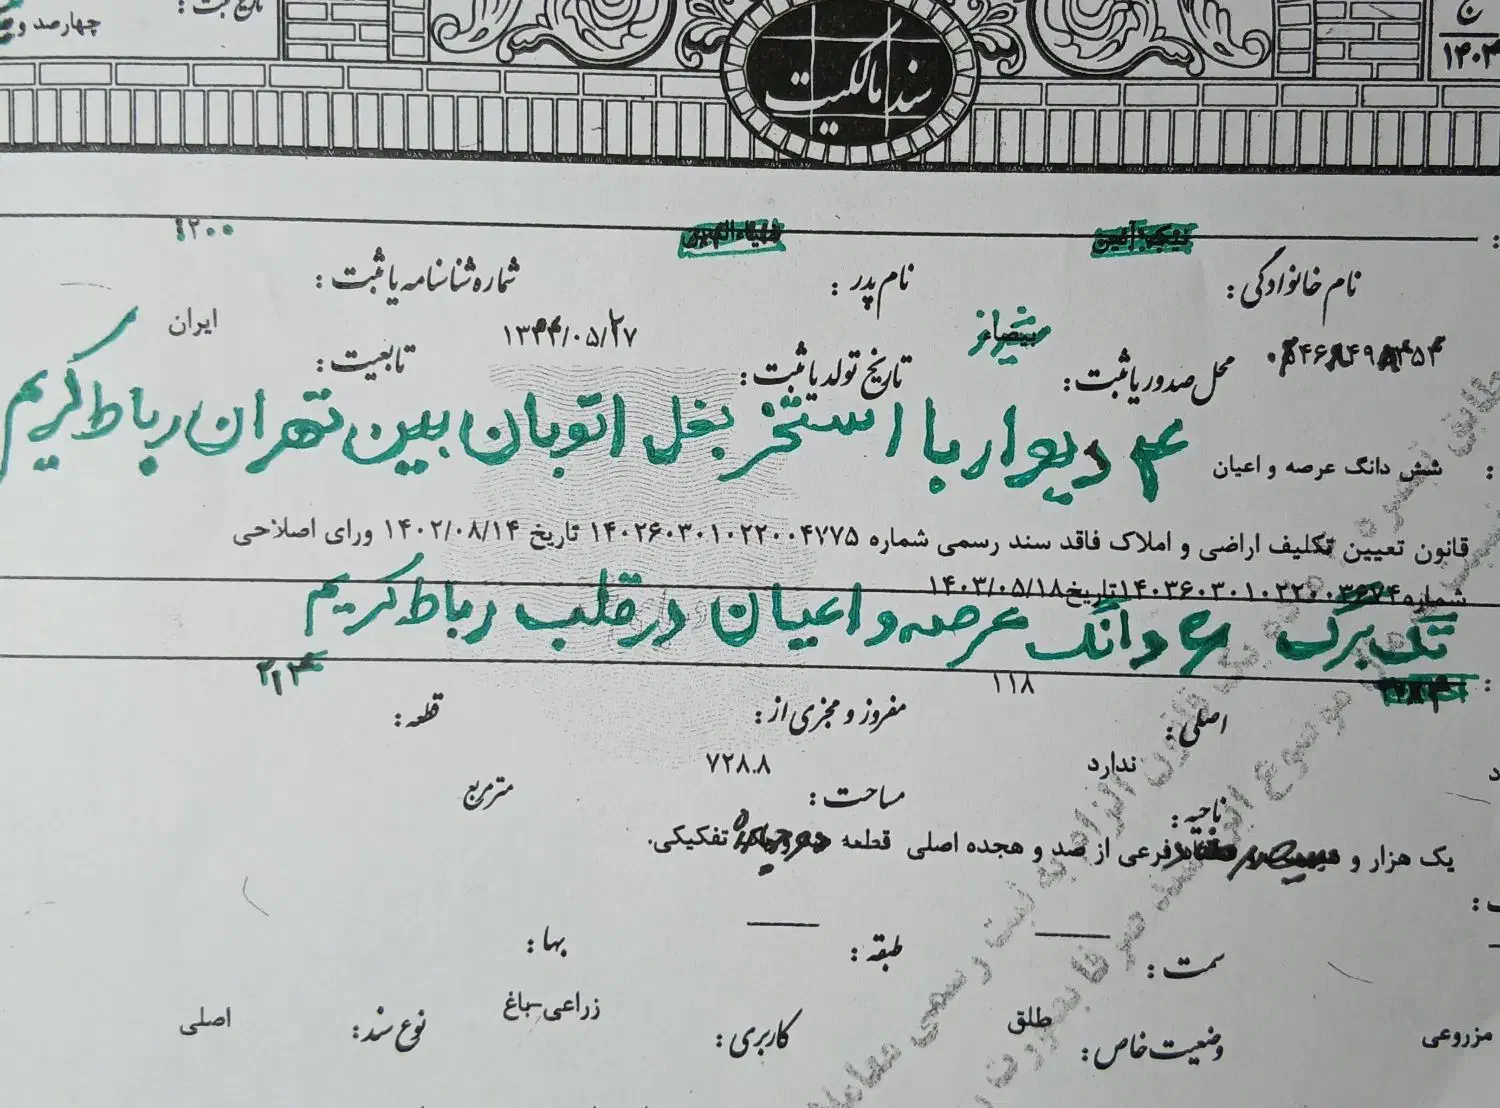 تاریخ ثبت :
چهارصد و
ج
۱۴۰۳
سند مالکیت
نام خانوادگی :
نام پدر :
شماره شناسنامه یا ثبت :
محل صدور یا ثبت :
تاریخ تولد یا ثبت :
تابعیت :
ایران
۴ دیوار با استخر بغل اتوبان بین تهران رباط کریم
شش دانگ عرصه و اعیان
قانون تعیین تکلیف اراضی و املاک فاقد سند رسمی شماره ۱۴۰۲۶۰۳۰۱۰۲۲۰۰۴۷۷۵ تاریخ ۱۴۰۲/۰۸/۱۴ ورای اصلاحی
شماره ۱۴۰۳۶۰۳۰۱۰۲۲۰۰۳۶۷۴ تاریخ ۱۴۰۳/۰۵/۱۸
تک برگ ۶ دانگ عرصه و اعیان در قلب رباط کریم
۱۱۸
اصلی :
مفروز و مجزی از :
قطعه :
ندارد
۷۲۸.۸
ناحیه :
مساحت :
مترمربع
یک هزار و فرعی از صد و هجده اصلی قطعه تفکیکی.
سمت :
طبقه :
بها :
مزروعی
وضعیت خاص :
طلق
کاربری :
زراعی-باغ
نوع سند :
اصلی